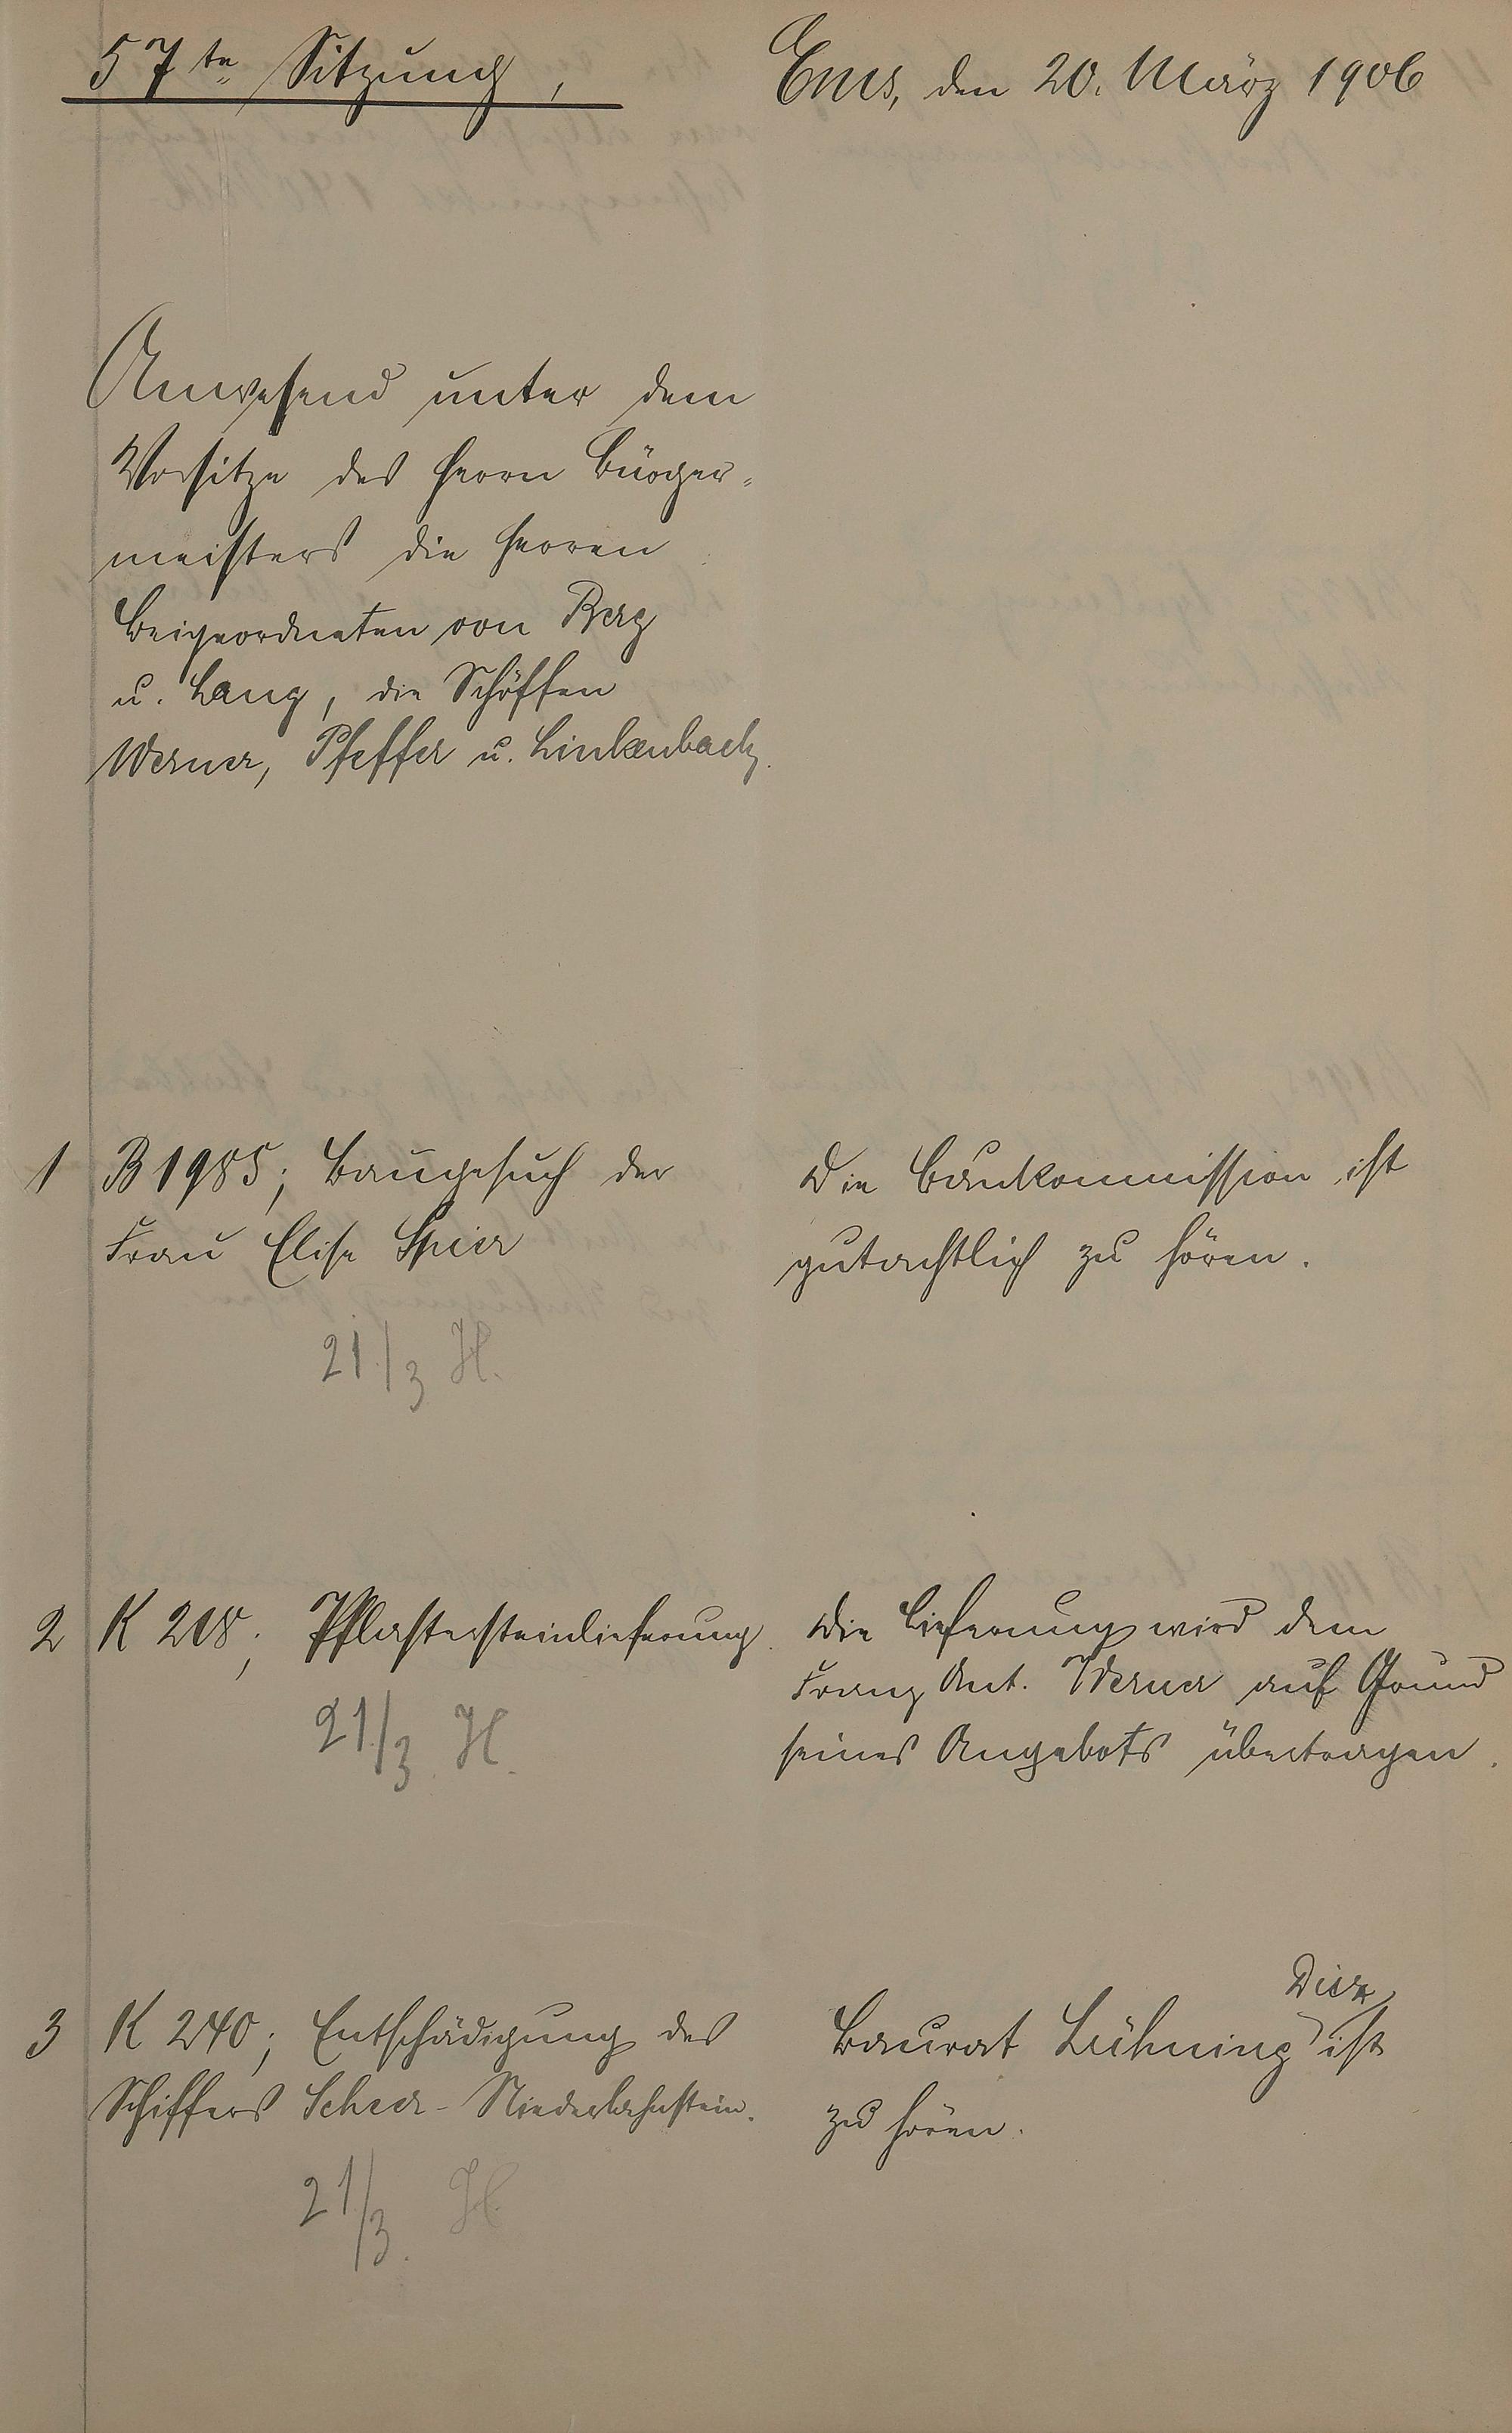 57te Sitzung,
Ems, den 20. März 1906
Anwesend unter dem
Vorsitze des Herrn Bürger-
meisters die Herren
Beigeordneten von Berg
u. Lang, die Schöffen
Werner, Pfeffer u. Linkenbach.
1 B 1985; Baugesuch der
Frau Elise Spier
21./3 H.
Die Baukommission ist
gutachtlich zu hören.
2 K 218; Pflastersteinlieferung.
21./3. H.
Die Lieferung wird dem
Franz Ant. Werner auf Grund
seines Angebots übertragen.
3 K 240; Entschädigung des
Schiffers Scheer-Niederlahnstein.
21/3. H.
Diez
Baurat Lühning ist
zu hören.